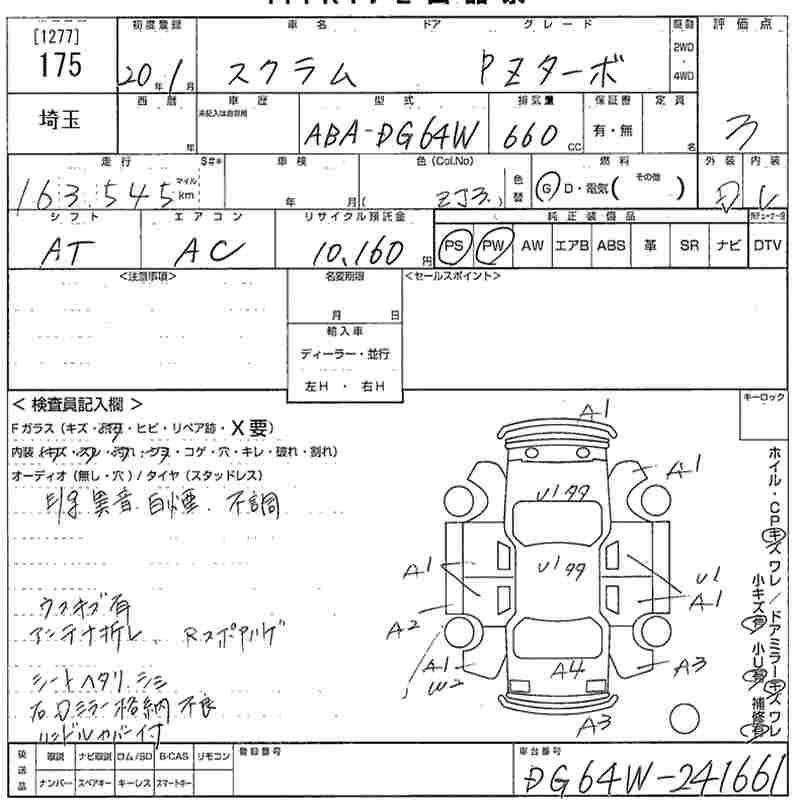 [1277]
175
初度登録
20年1月
車名
スクラム
ドア
グレード
PZターボ
駆動
2WD
・
4WD
評価点
3
埼玉
西暦
年
車歴
未記入は自家用
型式
ABA-DG64W
排気量
660 cc
保証書
有・無
定員
名
走行
163,545
マイル
km
S#*
車検
年 月
色(Col.No)
( ZJ3 )
色替
燃料
G D・電気( その他 )
外装
D
内装
シフト
AT
エアコン
AC
リサイクル預託金
10,160円
純正装備品
PS PW AW エアB ABS 革 SR ナビ DTV
<注意事項>
名変期限
月 日
輸入車
ディーラー・並行
左H ・ 右H
<セールスポイント>
< 検査員記入欄 >
Fガラス (キズ・ ・ヒビ・リペア跡・X要)
内装 (キズ・スレ・汚れ・シミ・コゲ・穴・キレ・破れ・割れ)
オーディオ (無し・穴) / タイヤ (スタッドレス)
異音 白煙. 不調
ウスオブ有
アンテナ折レ、 Rスポヤハゲ
シートヘタリ.シミ
右Dミラー格納不良
ハンドルカバー付
キーロック
ホイル・CPキズワレ/ドアミラーキズワレ
小キズ有 小U有 補修有
A1
A1
U1 99
U1 99
A1
U1
A1
A2
A1
W2
A4
A3
A3
後送品
取説 ナビ取説 ロム/SD B-CAS リモコン
ナンバー スペアキー キーレス スマートキー
登録番号
車台番号
DG64W-241661